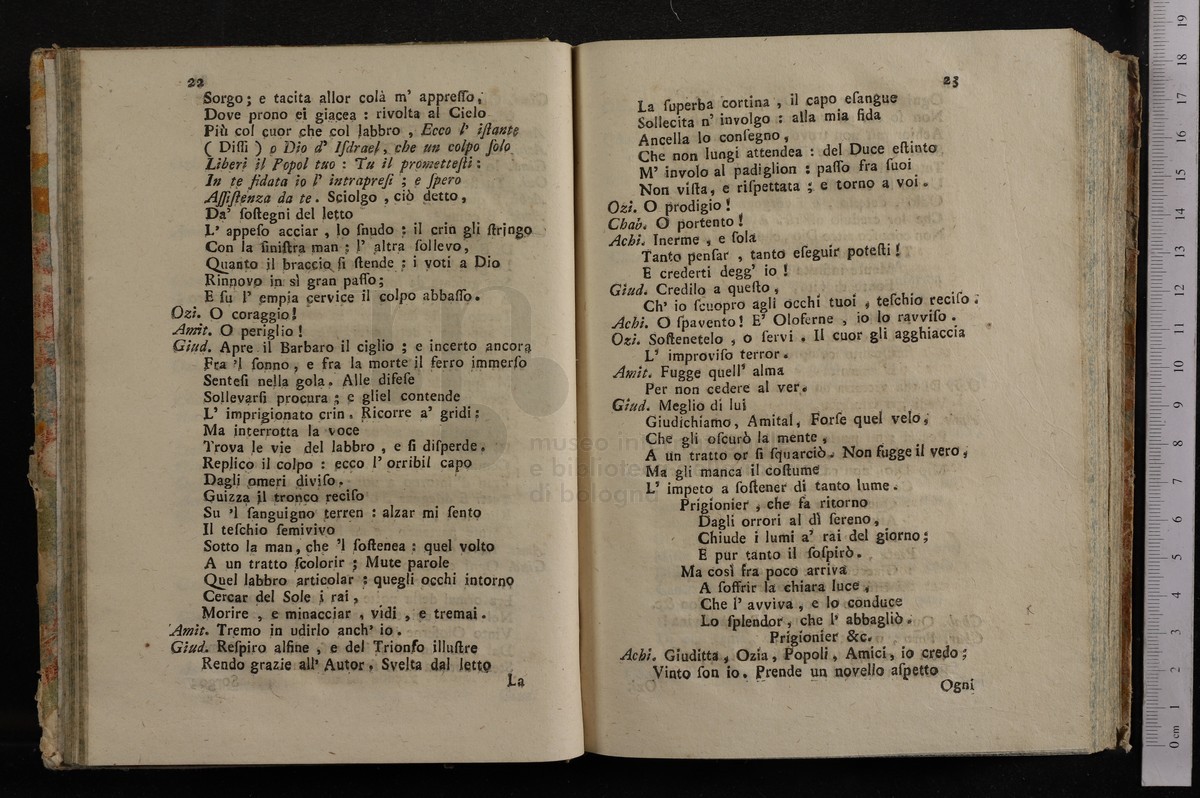 22
Sorgo; e tacita allor colà m' appreſſo,
Dove prono ei giacea : rivolta al Cielo
Più col cuor che col labbro , Ecco l' iſtante
( Diſſi ) o Dio d' Iſdrael, che un colpo ſolo
Liberi il Popol tuo : Tu il prometteſti :
In te fidata io l' intrapreſi ; e ſpero
Aſſiſtenza da te. Sciolgo , ciò detto,
Da' ſoſtegni del letto
L' appeſo acciar , lo ſnudo ; il crin gli ſtringo
Con la ſiniſtra man ; l' altra ſollevo,
Quanto il braccio ſi ſtende ; i voti a Dio
Rinnovo in sì gran paſſo;
E ſu l' empia cervice il colpo abbaſſo.
Ozi. O coraggio!
Amit. O periglio !
Giud. Apre il Barbaro il ciglio ; e incerto ancora
Fra 'l ſonno , e fra la morte il ferro immerſo
Senteſi nella gola. Alle difeſe
Sollevarſi procura ; e gliel contende
L' imprigionato crin. Ricorre a' gridi ;
Ma interrotta la voce
Trova le vie del labbro , e ſi diſperde.
Replico il colpo : ecco l' orribil capo
Dagli omeri diviſo.
Guizza il tronco reciſo
Su 'l ſanguigno terren : alzar mi ſento
Il teſchio ſemivivo
Sotto la man, che 'l ſoſtenea : quel volto
A un tratto ſcolorir ; Mute parole
Quel labbro articolar ; quegli occhi intorno
Cercar del Sole i rai,
Morire , e minacciar , vidi , e tremai.
Amit. Tremo in udirlo anch' io.
Giud. Reſpiro alfine , e del Trionfo illuſtre
Rendo grazie all' Autor. Svelta dal letto
La
23
La ſuperba cortina , il capo eſangue
Sollecita n' involgo : alla mia fida
Ancella lo conſegno,
Che non lungi attendea : del Duce eſtinto
M' involo al padiglion : paſſo fra ſuoi
Non viſta, e riſpettata ; e torno a voi.
Ozi. O prodigio !
Chab. O portento !
Achi. Inerme , e ſola
Tanto penſar , tanto eſeguir poteſti !
E crederti degg' io !
Giud. Credilo a queſto,
Ch' io ſcuopro agli occhi tuoi , teſchio reciſo.
Achi. O ſpavento! E' Oloferne , io lo ravviſo.
Ozi. Soſtenetelo , o ſervi . Il cuor gli agghiaccia
L' improviſo terror.
Amit. Fugge quell' alma
Per non cedere al ver.
Giud. Meglio di lui
Giudichiamo, Amital, Forſe quel velo,
Che gli oſcurò la mente,
A un tratto or ſi ſquarciò. Non fugge il vero,
Ma gli manca il coſtume
L' impeto a ſoſtener di tanto lume.
Prigionier , che fa ritorno
Dagli orrori al dì ſereno,
Chiude i lumi a' rai del giorno;
E pur tanto il ſoſpirò.
Ma così fra poco arriva
A ſoffrir la chiara luce,
Che l' avviva , e lo conduce
Lo ſplendor, che l' abbagliò.
Prigionier &c.
Achi. Giuditta, Ozia, Popoli, Amici, io credo;
Vinto ſon io. Prende un novello aſpetto
Ogni